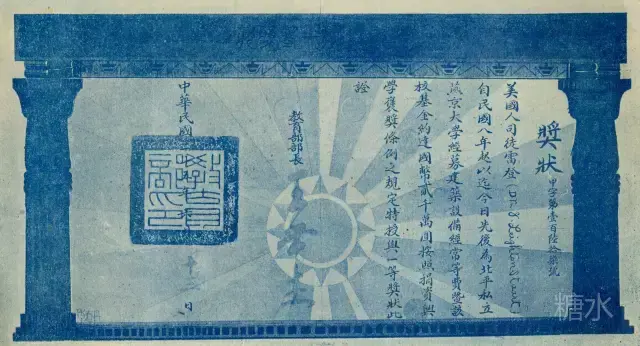 獎狀
甲字第壹百陸拾柒號
美國人司徒雷登(Dr. J. Leighton Stuart)
自民國八年起以迄今日先後為北平私立
燕京大學經募建築設備經常等費暨該
校基金約達國幣貳千萬圓按照捐資興
學褒獎條例之規定特授與一等獎狀此
證
教育部部長 王世杰
中華民國
日
教育部印
糖水